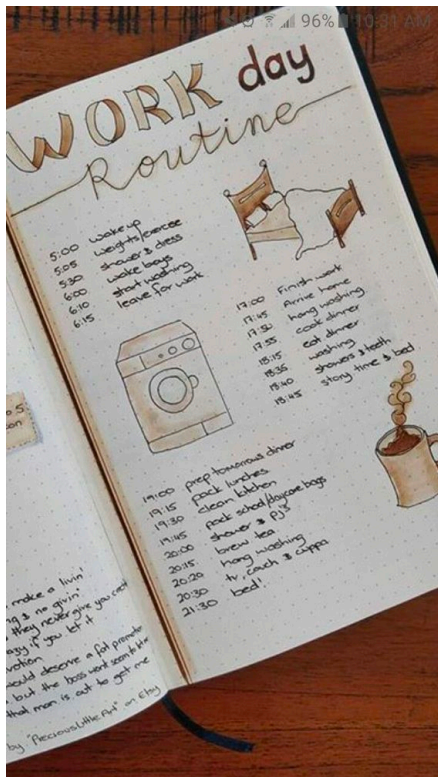 96% 10:31 AM
WORK day
Routine
5:00 wake up
5:05 weights/exercise
5:30 shower & dress
6:00 wake boys
6:10 start washing
6:15 leave for work
17:00 Finish work
17:45 Arrive home
17:50 hang washing
17:55 cook dinner
18:15 eat dinner
18:35 washing
18:40 showers & teeth
18:45 story time & bed
19:00 prep tomorrows dinner
19:15 pack lunches
19:30 clean kitchen
19:45 pack school/daycare bags
20:00 shower & PJ's
20:15 brew tea
20:20 hang washing
20:30 tv, couch & cuppa
21:30 bed!
o 5
on
make a livin'
g & no givin'
they never give you credit
azy if you let it
votion
would deserve a fat
but the boss wont seem to let
that man is out to get me
by "PreciousLittleArt" on Etsy